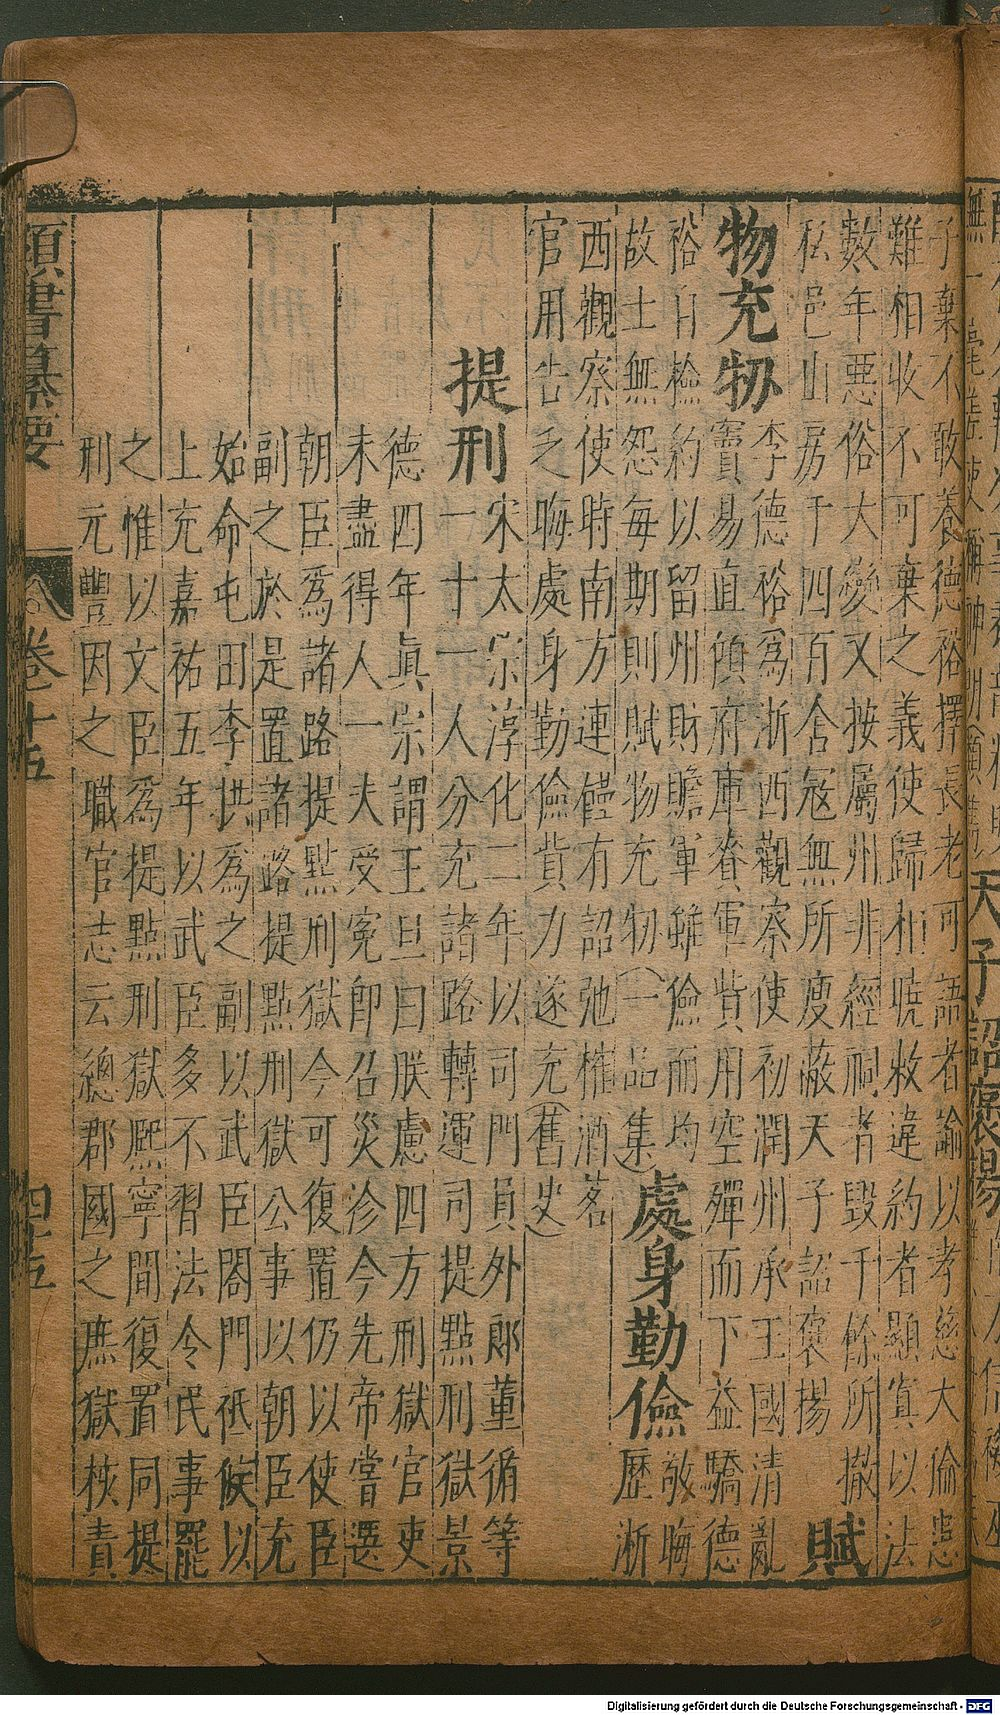 子棄不敢養德裕擇長老可語者諭以孝慈大倫患
難相收不可棄之義使歸相曉敕違約者顯寘以法
數年惡俗大變又按屬州非經祠者毀千餘所撤
私邑山房千四百舍寇無所廋蔽天子詔褒揚 賦
物充牣
李德裕為浙西觀察使初潤州承王國清亂
竇易直傾府庫賚軍貲用空殫而下益驕德
裕自檢約以留州財贍軍雖儉而均
故士無怨每期則賦物充牣(一品集)
處身勤儉
敬晦
歷淅
西觀察使時南方連饉有詔弛榷酒茗
官用告乏晦處身勤儉貲力遂充(舊史)
提刑
宋太宗淳化二年以司門員外郎董循等
一十一人分充諸路轉運司提點刑獄景
德四年眞宗謂王旦曰朕慮四方刑獄官吏
未盡得人一夫受冤即召災沴今先帝嘗選
朝臣爲諸路提點刑獄今可復置仍以使臣
副之於是置諸路提點刑獄公事以朝臣充
始命屯田李拱爲之副以武臣閤門祗候以
上充嘉祐五年以武臣多不習法令民事罷
之惟以文臣爲提點刑獄熙寧間復置同提
刑元豐因之職官志云總郡國之庶獄核責
類書纂要
八
卷十五
四十五
天子詔褒揚
Digitalisierung gefördert durch die Deutsche Forschungsgemeinschaft - DFG